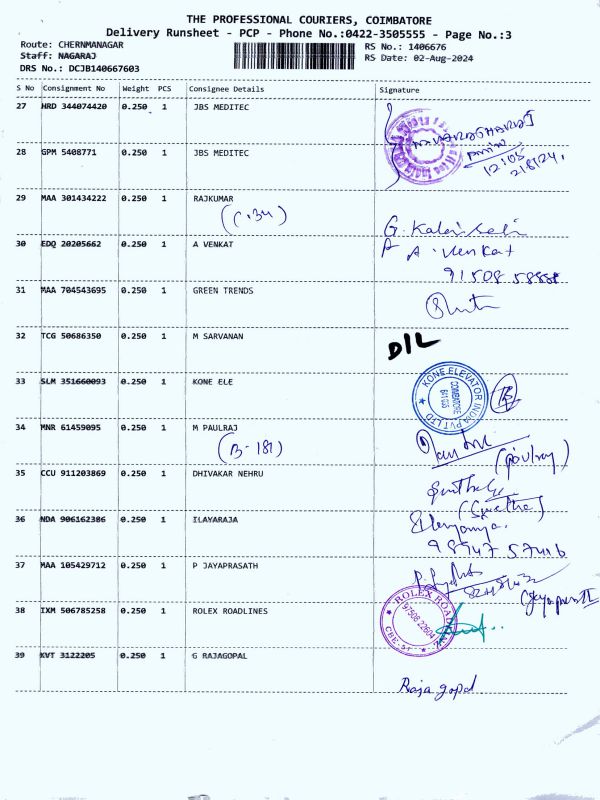 THE PROFESSIONAL COURIERS, COIMBATORE
Delivery Runsheet - PCP - Phone No.:0422-3505555 - Page No.:3
Route: CHERNMANAGAR
Staff: NAGARAJ
DRS No.: DCJB140667603
RS No.: 1406676
RS Date: 02-Aug-2024
S No Consignment No Weight PCS Consignee Details Signature
27 HRD 344074420 0.250 1 JBS MEDITEC
28 GPM 5408771 0.250 1 JBS MEDITEC
12:05
2/8/24,
29 MAA 301434222 0.250 1 RAJKUMAR
(C.34)
30 EDQ 20205662 0.250 1 A VENKAT
A. Venkat
31 MAA 704543695 0.250 1 GREEN TRENDS
32 TCG 50686350 0.250 1 M SARVANAN D/L
33 SLM 351660093 0.250 1 KONE ELE
KONE ELEVATOR INDIA PVT LTD
COIMBATORE
34 MNR 61459095 0.250 1 M PAULRAJ
(B-181)
35 CCU 911203869 0.250 1 DHIVAKAR NEHRU
36 NDA 906162386 0.250 1 ILAYARAJA
98947 57416
37 MAA 105429712 0.250 1 P JAYAPRASATH
38 IXM 506785258 0.250 1 ROLEX ROADLINES
ROLEX ROAD
97508 22604
39 KVT 3122205 0.250 1 G RAJAGOPAL
Rajagopal